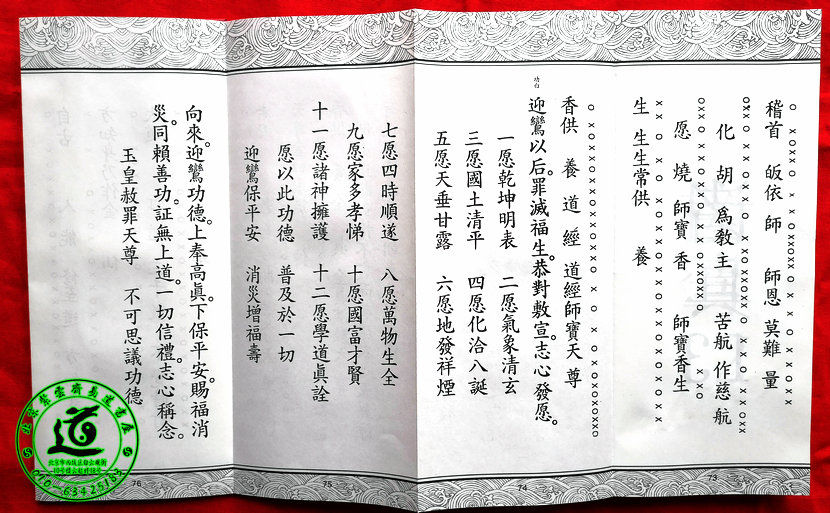 稽首 皈依師 師恩 莫難 量
化 胡 爲教主 苦航 作慈 航
愿 燒 師寶 香 師寶香生
生 生生常供 養
73
香供 養 道 經 道經師寶天 尊
功白
迎鸞以后。罪滅福生。恭對敷宣。志心發愿。
一愿乾坤明表 二愿氣象清玄
三愿國土清平 四愿化洽八誕
五愿天垂甘露 六愿地發祥煙
74
七愿四時順遂 八愿萬物生全
九愿家多孝悌 十愿國富才賢
十一愿諸神擁護 十二愿學道眞詮
愿以此功德 普及於一切
迎鸞保平安 消災增福壽
75
向來迎鸞功德。上奉高眞。下保平安。賜福消
災。同賴善功。証無上道。一切信禮。志心稱念。
玉皇赦罪天尊 不可思議功德
76
北京紫雲齋易道書店
道
010-63425163